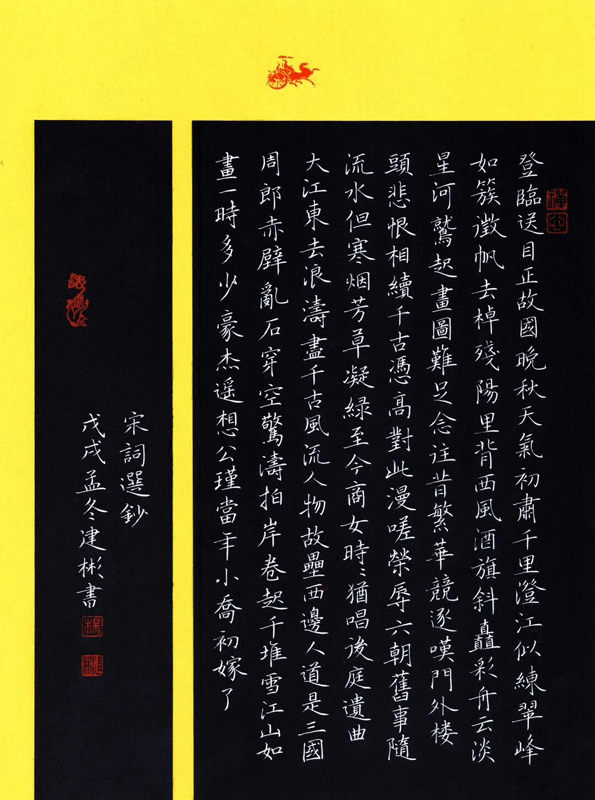 登臨送目正故國晚秋天氣初肅千里澄江似練翠峰
如簇澂帆去棹殘陽里背西風酒旗斜矗彩舟云淡
星河鷺起畫圖難足念往昔繁華競逐嘆門外楼
頭悲恨相續千古憑高對此漫嗟榮辱六朝舊事隨
流水但寒烟芳草凝緑至今商女時〻猶唱後庭遺曲
大江東去浪濤盡千古風流人物故壘西邊人道是三國
周郎赤壁亂石穿空驚濤拍岸卷起千堆雪江山如
畫一時多少豪杰遥想公瑾當年小喬初嫁了
宋詞選鈔
戊戌孟冬建彬書